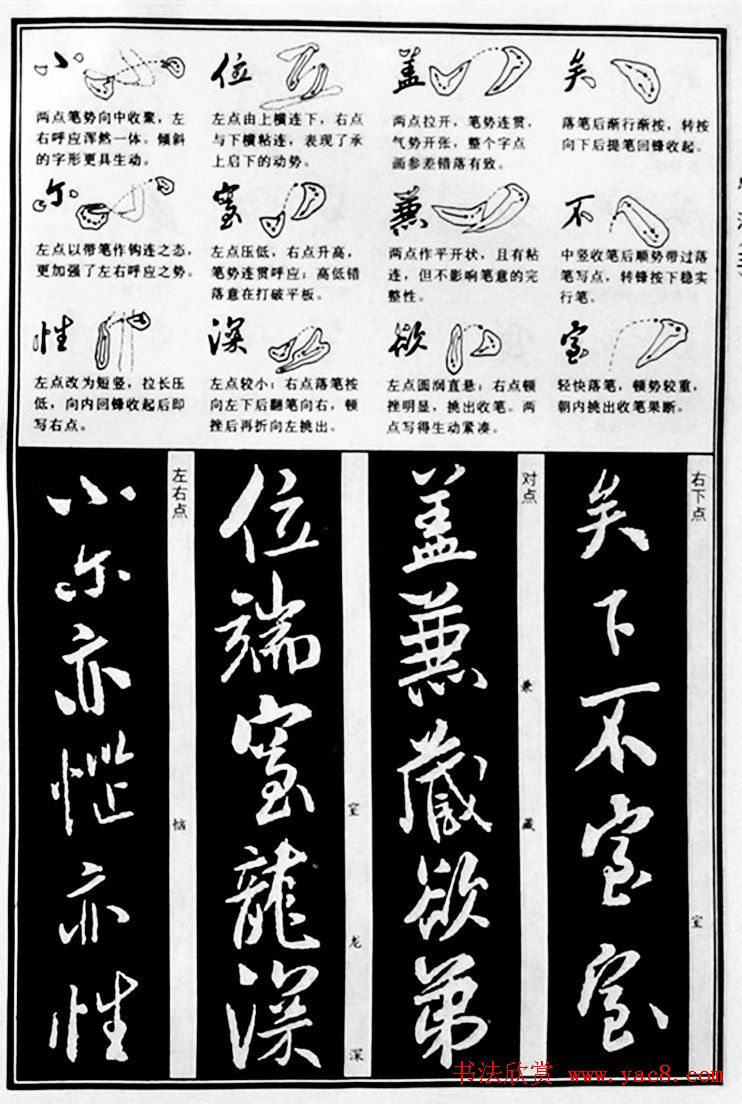 小
两点笔势向中收聚，左
右呼应浑然一体。倾斜
的字形更具生动。
位
左点由上横连下，右点
与下横粘连，表现了承
上启下的动势。
盖
两点拉开，笔势连贯，
气势开张，整个字点
画参差错落有致。
矣
落笔后渐行渐按，转按
向下后提笔回锋收起。
尔
左点以带笔作钩连之态，
更加强了左右呼应之势。
室
左点压低，右点升高，
笔势连贯呼应；高低错
落意在打破平板。
兼
两点作平开状，且有粘
连，但不影响笔意的完
整性。
不
中竖收笔后顺势带过落
笔写点，转锋按下稳实
行笔。
性
左点改为短竖，拉长压
低，向内回锋收起后即
写右点。
深
左点较小；右点落笔按
向左下后翻笔向右，顿
挫后再折向左挑出。
欲
左点圆润直悬；右点顿
挫明显，挑出收笔。两
点写得生动紧凑。
室
轻快落笔，顿势较重，
朝内挑出收笔果断。
右下点
矣下不室室
室
对点
盖兼藏欲弟
兼 藏
位端室龍深
室 龙 深
左右点
小尔亦恼亦性
恼
书法欣赏 www.yac8.com